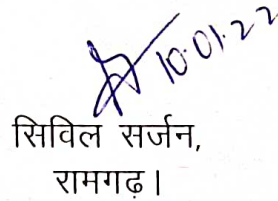 10.01.22
सिविल सर्जन,
रामगढ़।